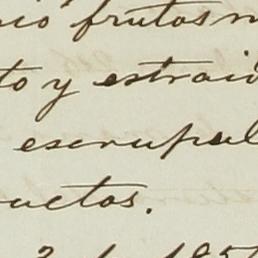 frutos
to y estraid
escrupul
uctos.